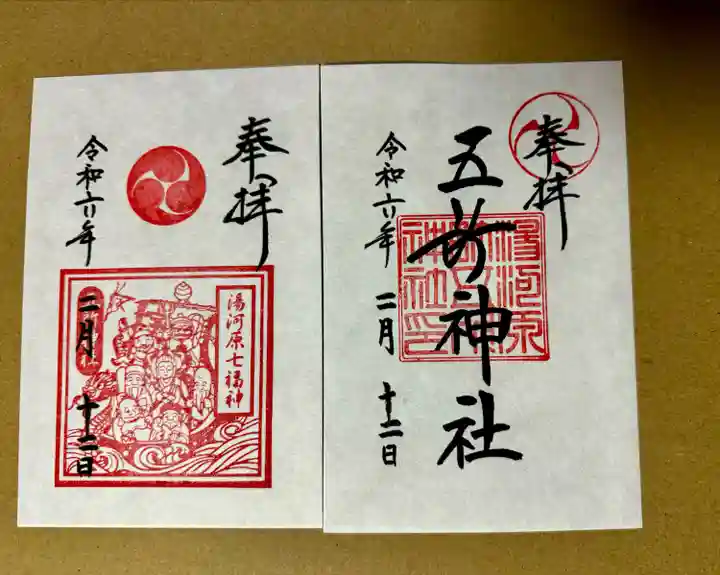 奉拝
五所神社
令和六年
二月
十二日
奉拝
湯河原七福神
令和六年
二月
十二日